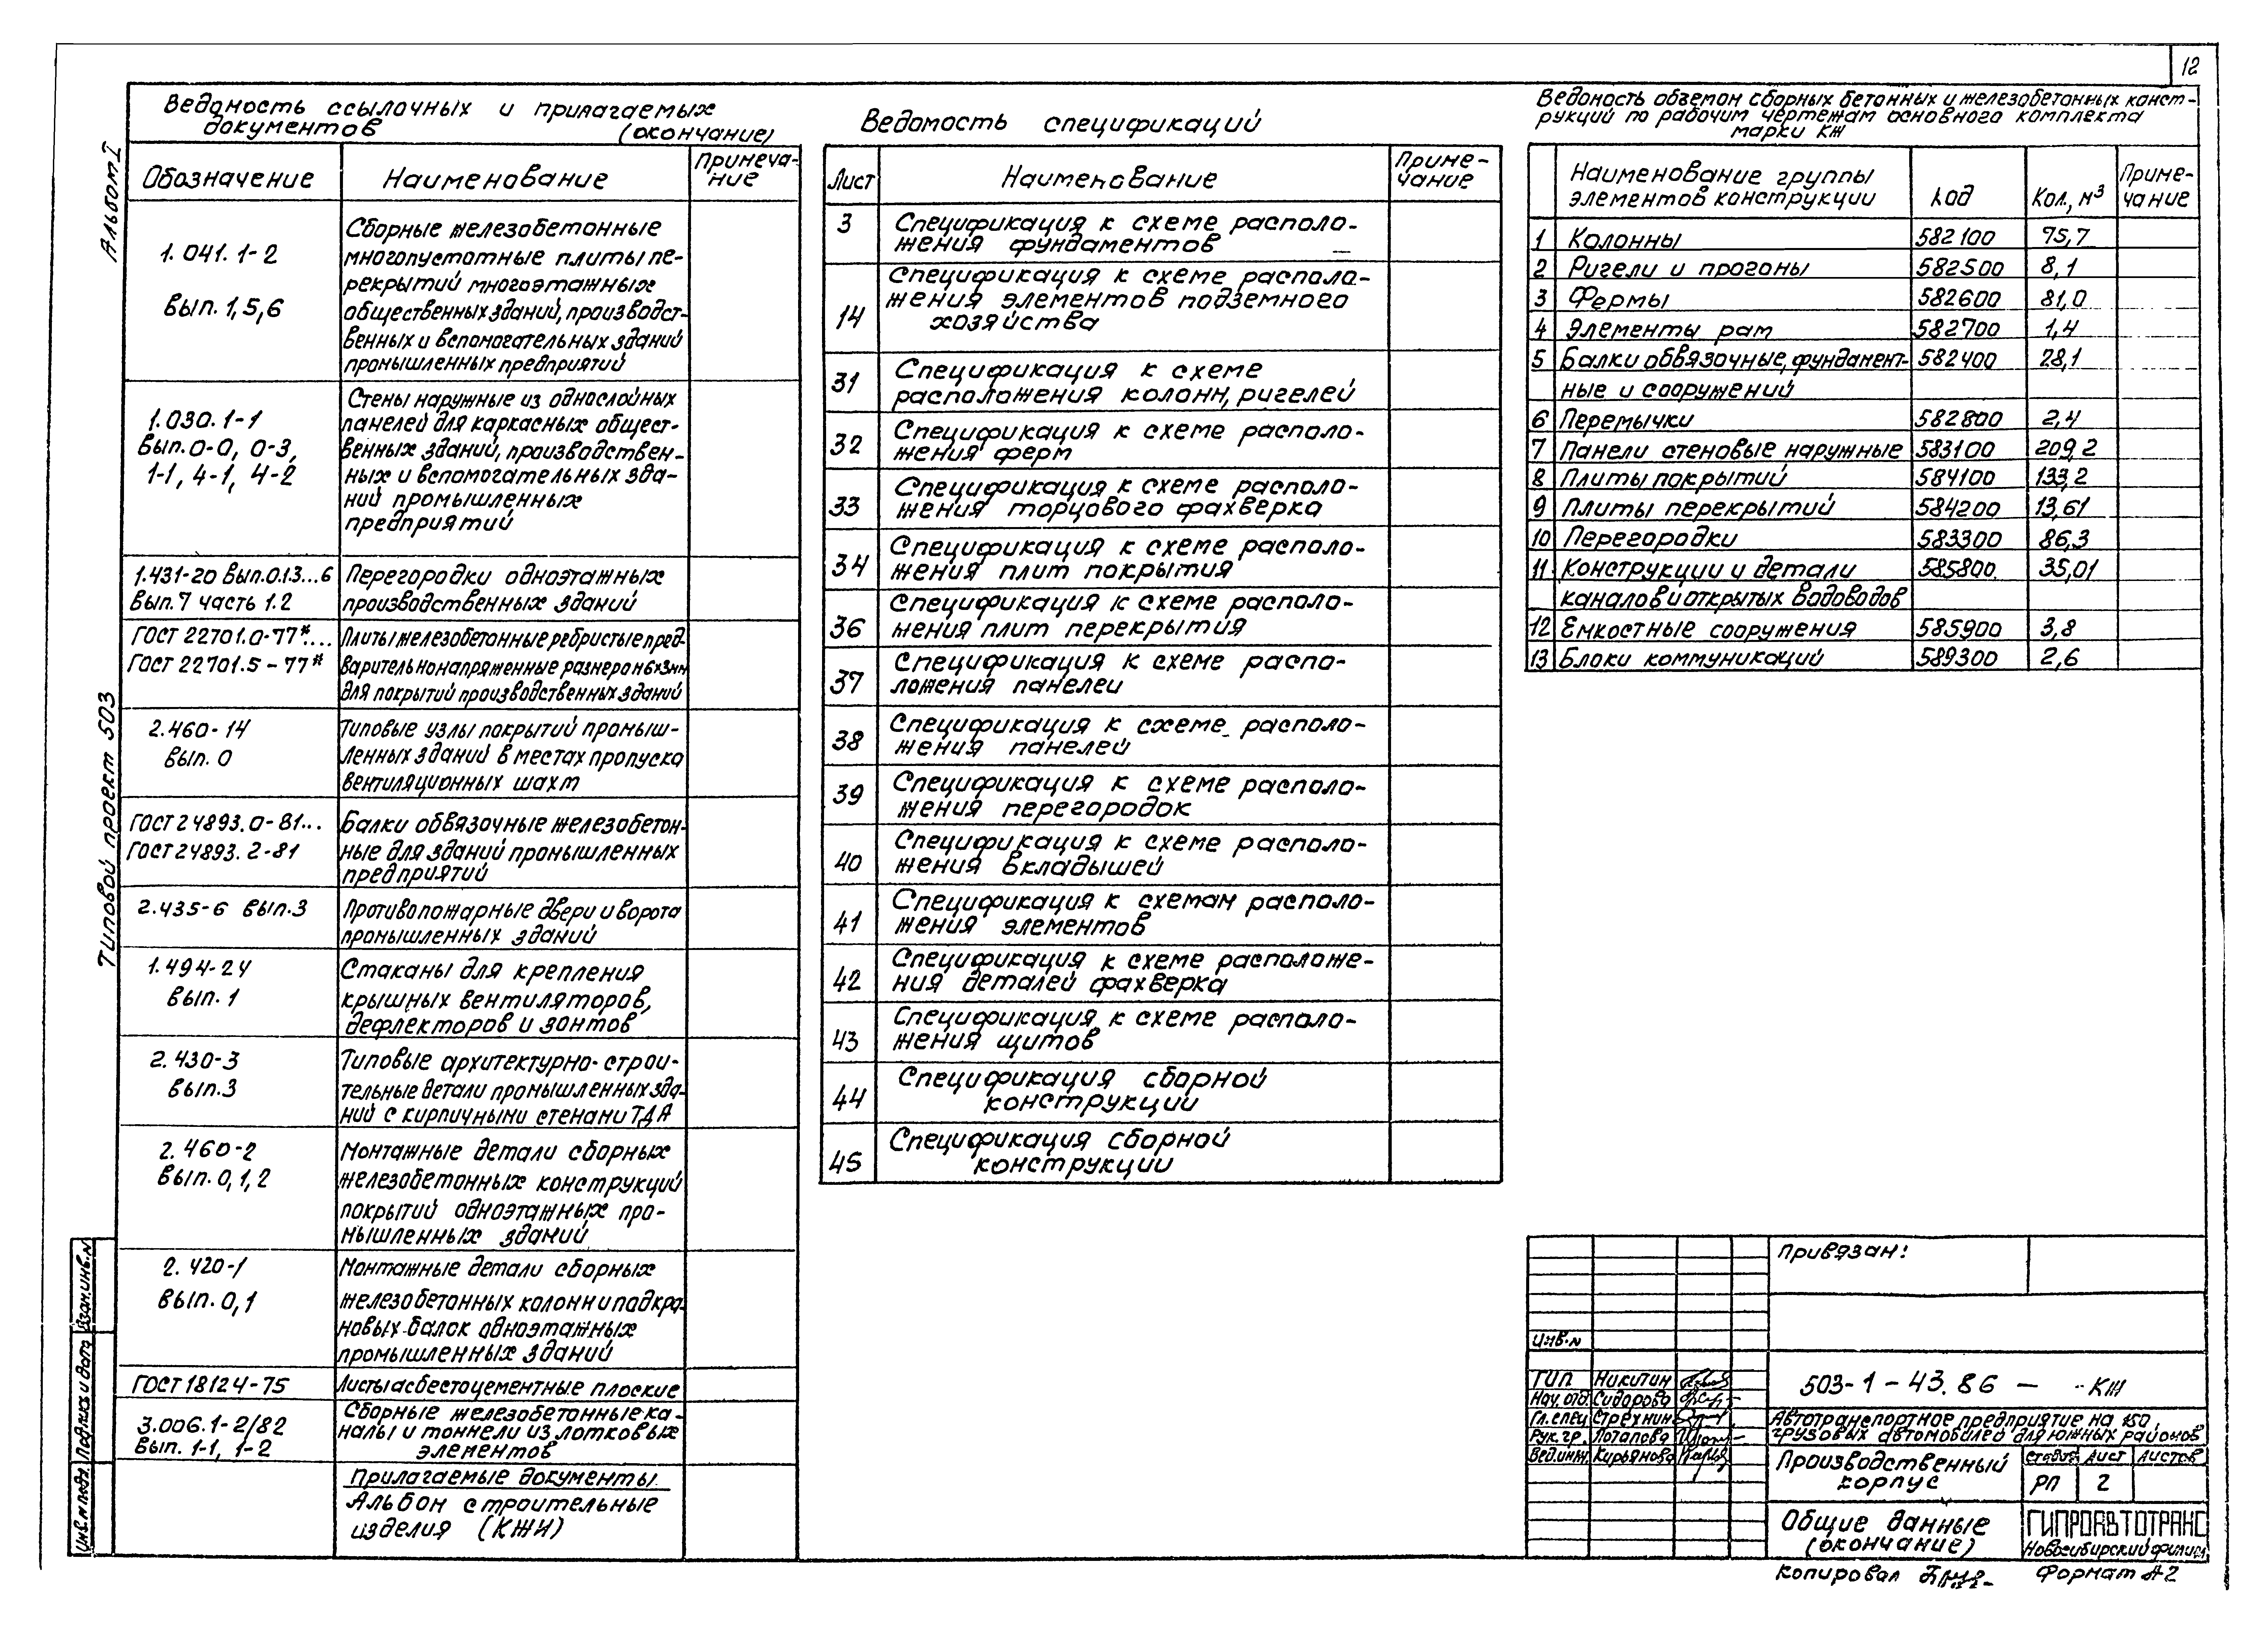 12
Альбом I
Типовой проект 503
Ведомость ссылочных и прилагаемых
документов (окончание)
Обозначение
Наименование
Примеча-
ние
1.041.1-2
вып. 1,5,6
Сборные железобетонные
многопустотные плиты пе-
рекрытий многоэтажных
общественных зданий, производст-
венных и вспомогательных зданий
промышленных предприятий
1.030.1-1
вып. 0-0, 0-3,
1-1, 4-1, 4-2
Стены наружные из однослойных
панелей для каркасных общест-
венных зданий, производствен-
ных и вспомогательных зда-
ний промышленных
предприятий
1.431-20 вып.0.13...6
вып. 7 часть 1.2
Перегородки одноэтажных
производственных зданий
ГОСТ 22701.0-77*...
ГОСТ 22701.5-77*
Плиты железобетонные ребристые пред-
варительно напряженные размером 6х3мм
для покрытий производственных зданий
2.460-14
вып. 0
Типовые узлы покрытий промыш-
ленных зданий в местах пропуска
вентиляционных шахт
ГОСТ 24893.0-81...
ГОСТ 24893.2-81
Балки обвязочные железобетон-
ные для зданий промышленных
предприятий
2.435-6 вып.3
Противопожарные двери и ворота
промышленных зданий
1.494-24
вып. 1
Стаканы для крепления
крышных вентиляторов,
дефлекторов и зонтов
2.430-3
вып.3
Типовые архитектурно-строи-
тельные детали промышленных зда-
ний с кирпичными стенами ТДА
2.460-2
вып. 0,1,2
Монтажные детали сборных
железобетонных конструкций
покрытий одноэтажных про-
мышленных зданий
2.420-1
вып. 0,1
Монтажные детали сборных
железобетонных колонн и подкра-
новых балок одноэтажных
промышленных зданий
ГОСТ 18124-75
Листы асбестоцементные плоские
3.006.1-2/82
вып. 1-1, 1-2
Сборные железобетонные ка-
налы и тоннели из лотковых
элементов
Прилагаемые документы
Альбом строительные
изделия (КЖИ)
Ведомость спецификаций
Лист
Наименование
Приме-
чание
3
Спецификация к схеме располо-
жения фундаментов
14
Спецификация к схеме располо-
жения элементов подземного
хозяйства
31
Спецификация к схеме
расположения колонн, ригелей
32
Спецификация к схеме располо-
жения ферм
33
Спецификация к схеме располо-
жения торцового фахверка
34
Спецификация к схеме располо-
жения плит покрытия
36
Спецификация к схеме располо-
жения плит перекрытия
37
Спецификация к схеме распо-
ложения панелей
38
Спецификация к схеме располо-
жения панелей
39
Спецификация к схеме располо-
жения перегородок
40
Спецификация к схеме располо-
жения вкладышей
41
Спецификация к схемам располо-
жения элементов
42
Спецификация к схеме расположе-
ния деталей фахверка
43
Спецификация к схеме располо-
жения щитов
44
Спецификация сборной
конструкции
45
Спецификация сборной
конструкции
Ведомость объемом сборных бетонных и железобетонных конст-
рукций по рабочим чертежам основного комплекта
марки КЖ
Наименование группы
элементов конструкции
Код
Кол., м³
Приме-
чание
1 Колонны 582100 75,7
2 Ригели и прогоны 582500 8,1
3 Фермы 582600 81,0
4 Элементы рам 582700 1,4
5 Балки обвязочные, фундамент- 582400 28,1
ные и сооружений
6 Перемычки 582800 2,4
7 Панели стеновые наружные 583100 209,2
8 Плиты покрытий 584100 133,2
9 Плиты перекрытий 584200 13,61
10 Перегородки 583300 86,3
11 Конструкции и детали 585800 35,01
каналов и открытых водоводов
12 Емкостные сооружения 585900 3,8
13 Блоки коммуникаций 589300 2,6
Привязан:
Инв.N
ГИП Никитин
Нач.отд. Сидорова
Гл.спец Стрехнин
Рук.гр. Потапова
Вед.инж. Кирьянова
503-1-43.86 — -КЖ
Автотранспортное предприятие на 150
грузовых автомобилей для южных районов
Производственный
корпус
Стадия Лист Листов
РП 2
Общие данные
(окончание)
ГИПРОАВТОТРАНС
Новосибирский филиал
Копировал
Формат А2
Взам.инв.N
Подпись и дата
Инв.N подл.